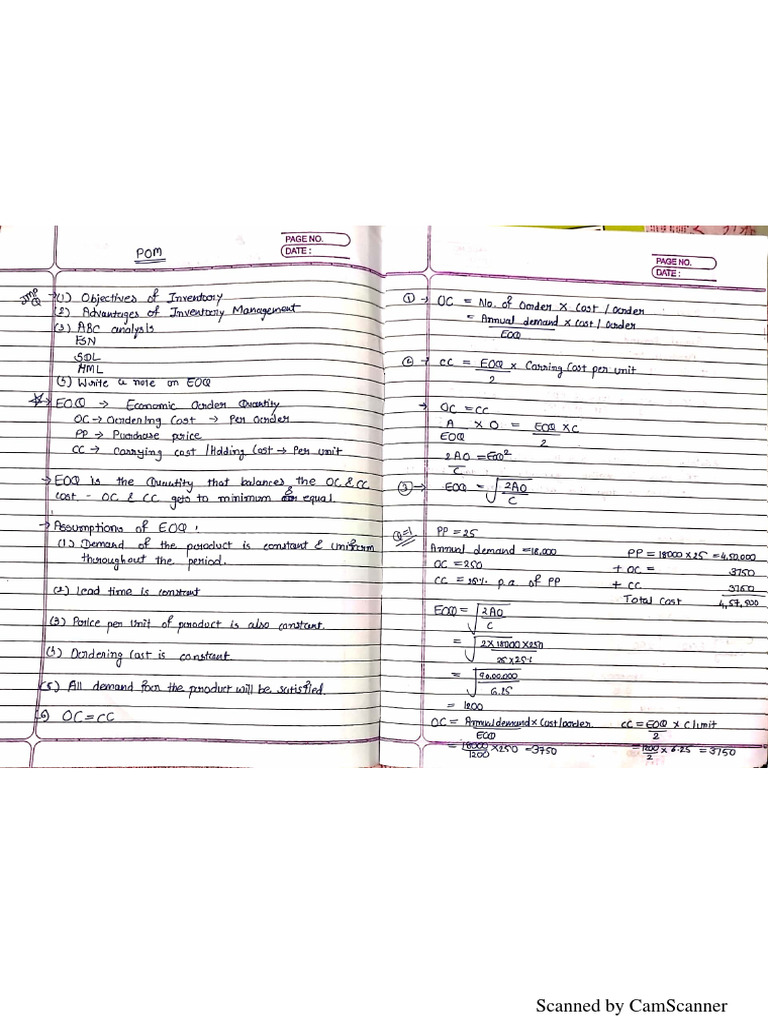 PAGE NO.
DATE :
POM
Imp Q → (1) Objectives of Inventory
(2) Advantages of Inventory Management
(3) ABC analysis
FSN
SDL
HML
(5) Write a note on EOQ
EOQ → Economic Order Quantity
OC → Ordering Cost → Per order
PP → Purchase price
CC → Carrying cost / Holding Cost → Per unit
→ EOQ is the Quantity that balances the OC & CC
cost - OC & CC gets to minimum & equal.
→ Assumptions of EOQ :
(1) Demand of the product is constant & uniform
throughout the period.
(2) Lead time is constant
(3) Price per unit of product is also constant.
(3) Ordering Cost is constant.
(5) All demand for the product will be satisfied.
(6) OC = CC
PAGE NO.
DATE :
① → OC = No. of Order × Cost / Order
= Annual demand × Cost / Order
EOQ
② → CC = EOQ × Carring Cost per unit
2
→ OC = CC
A × O = EOQ × C
EOQ 2
2AO = EOQ²
C
③ → EOQ = √2AO
C
Q=1. PP = 25
Annual demand = 18,000 PP = 18000 × 25 = 4,50,000
OC = 250 + OC = 3750
CC = 25% p.a of PP + CC 3750
Total Cost 4,57,500
EOQ = √2AO
C
= √2 × 18000 × 250
25 × 25%
= √90,00,000
6.25
= 1200
OC = Annual demand × Cost/order CC = EOQ × C/unit
EOQ 2
= 18000 × 250 = 3750 = 1200 × 6.25 = 3750
1200 2
Scanned by CamScanner